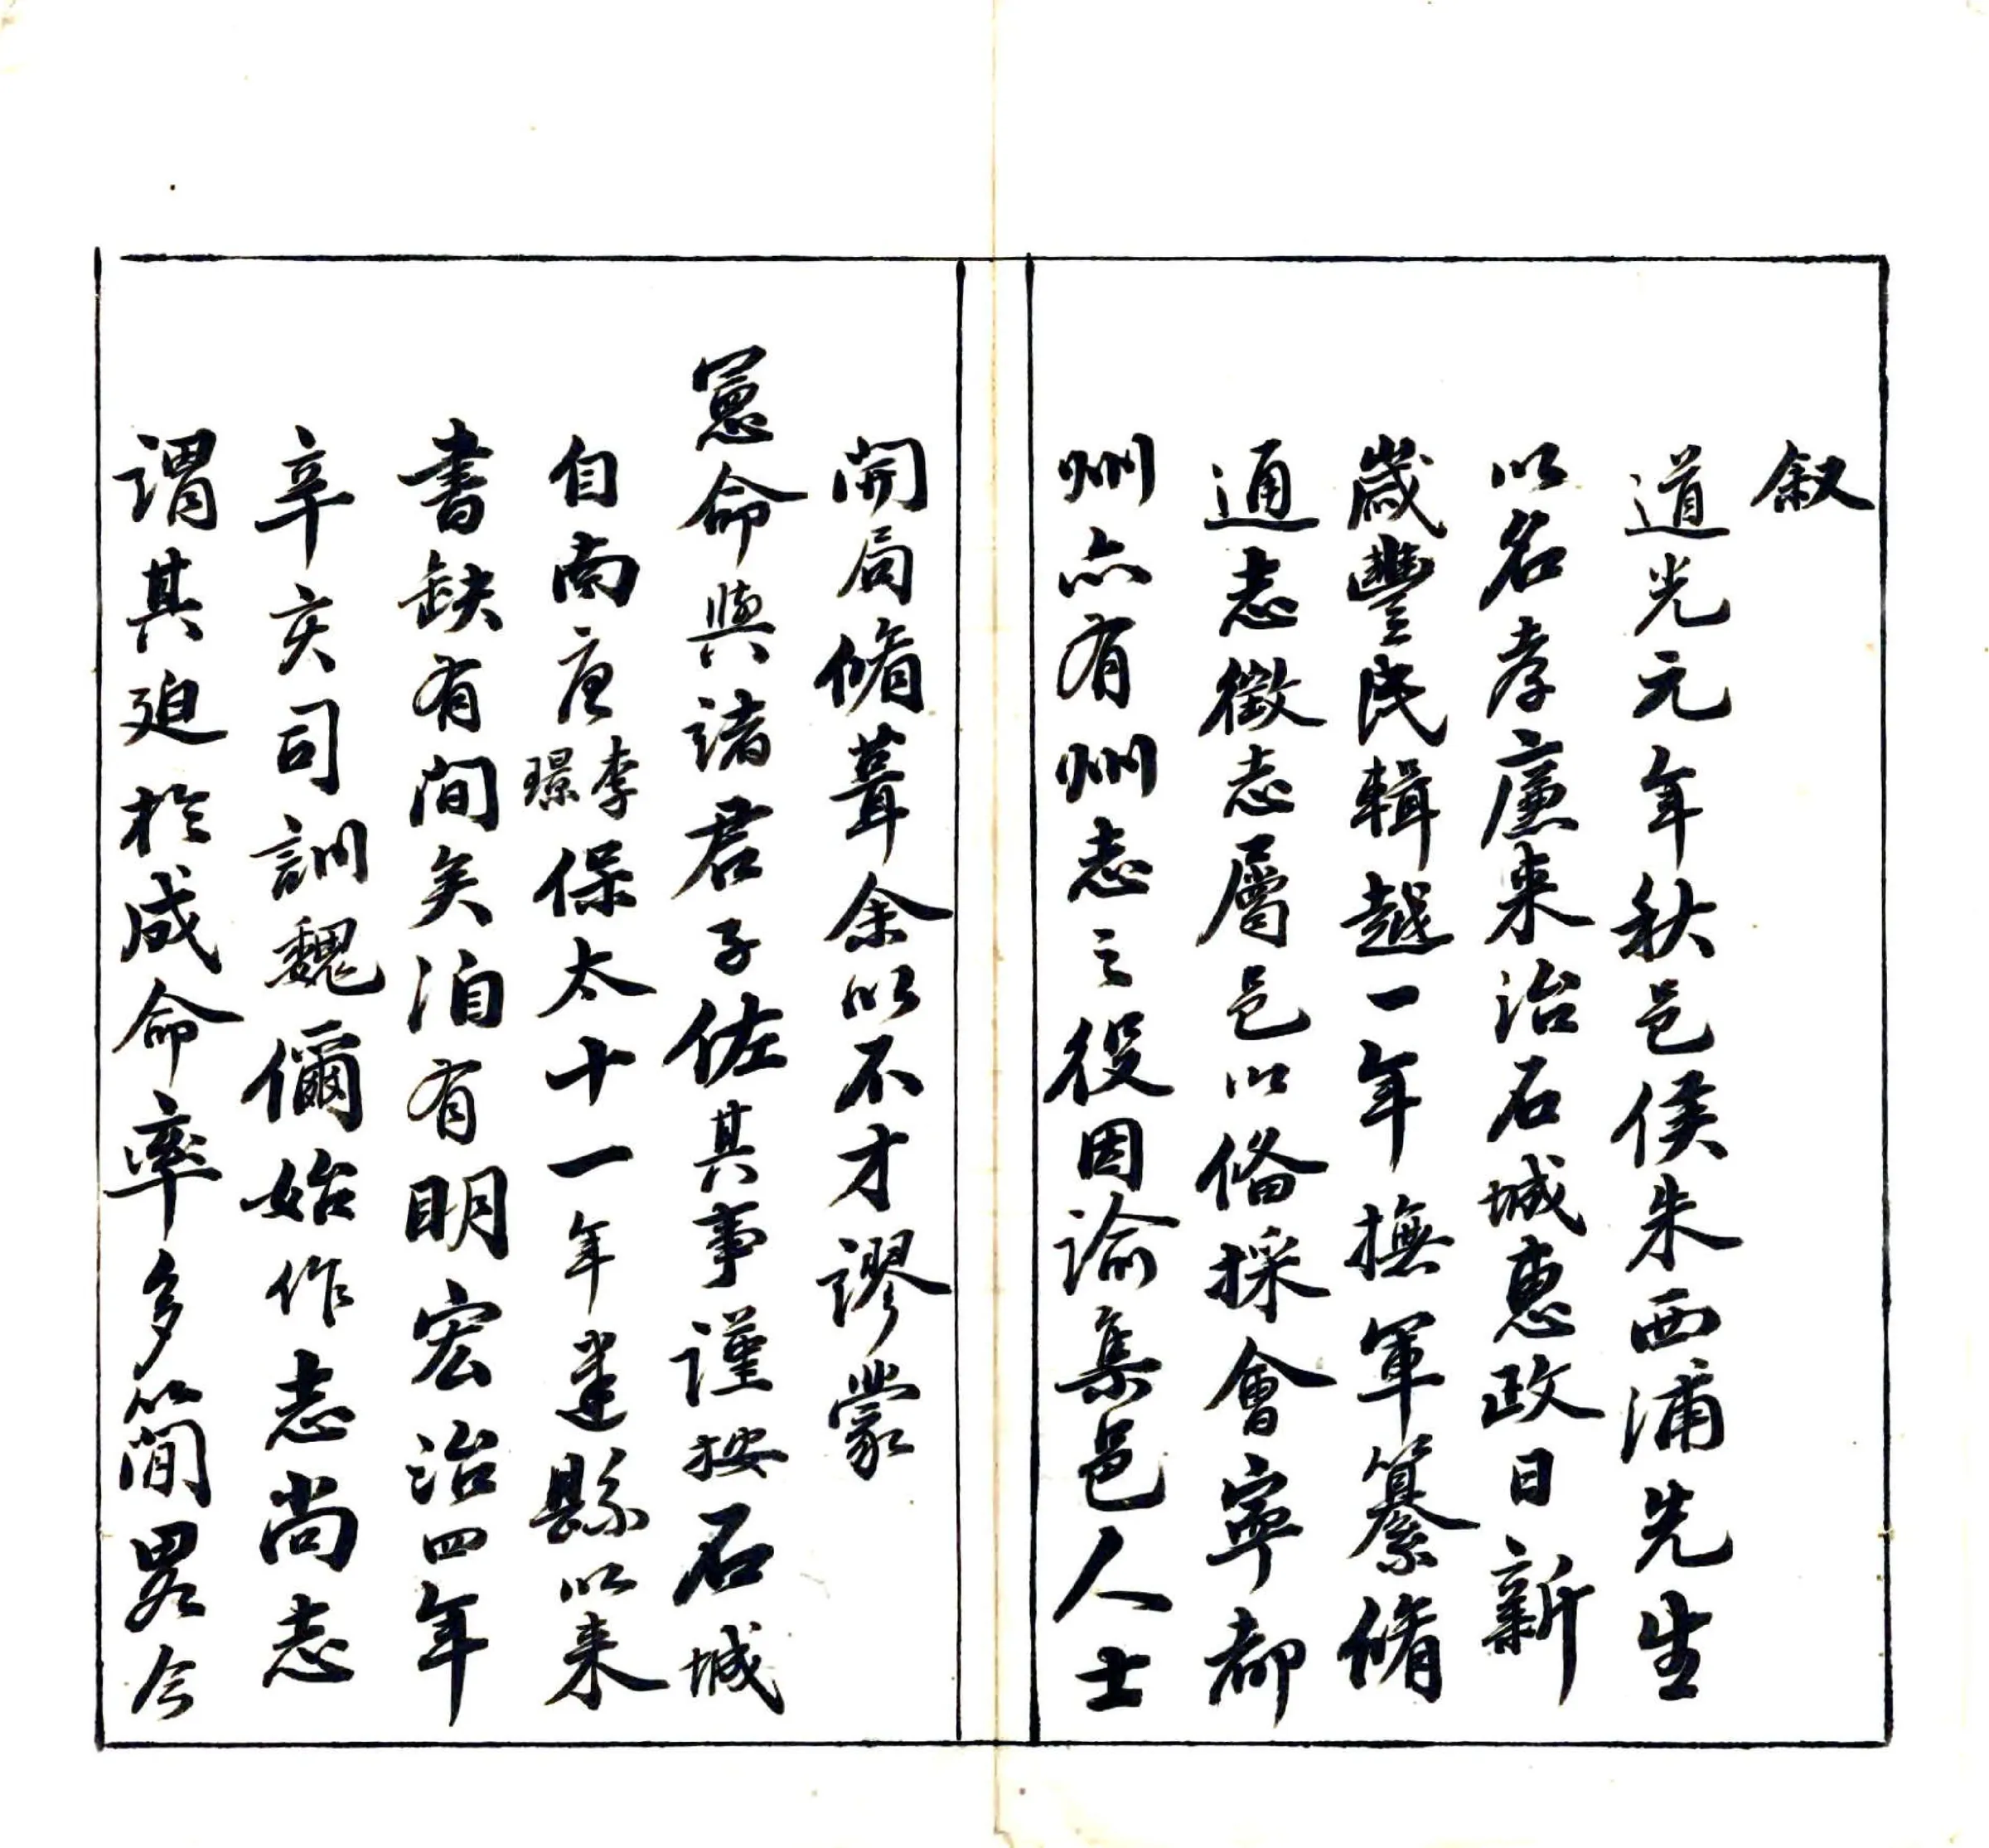 叙
道光元年秋邑侯朱西浦先生
以名孝廉来治石城惠政日新
歲豐民輯越一年撫軍纂脩
通志徵志屬邑以俻採會寧都
州亦有州志之役因諭集邑人士
開局脩葺余以不才謬蒙
憲命與諸君子佐其事謹按石城
自南唐李璟保太十一年建縣以来
書缺有間矣洎有明宏治四年
辛亥司訓魏儞始作志尚志
謂其廹於成命率多簡畧今